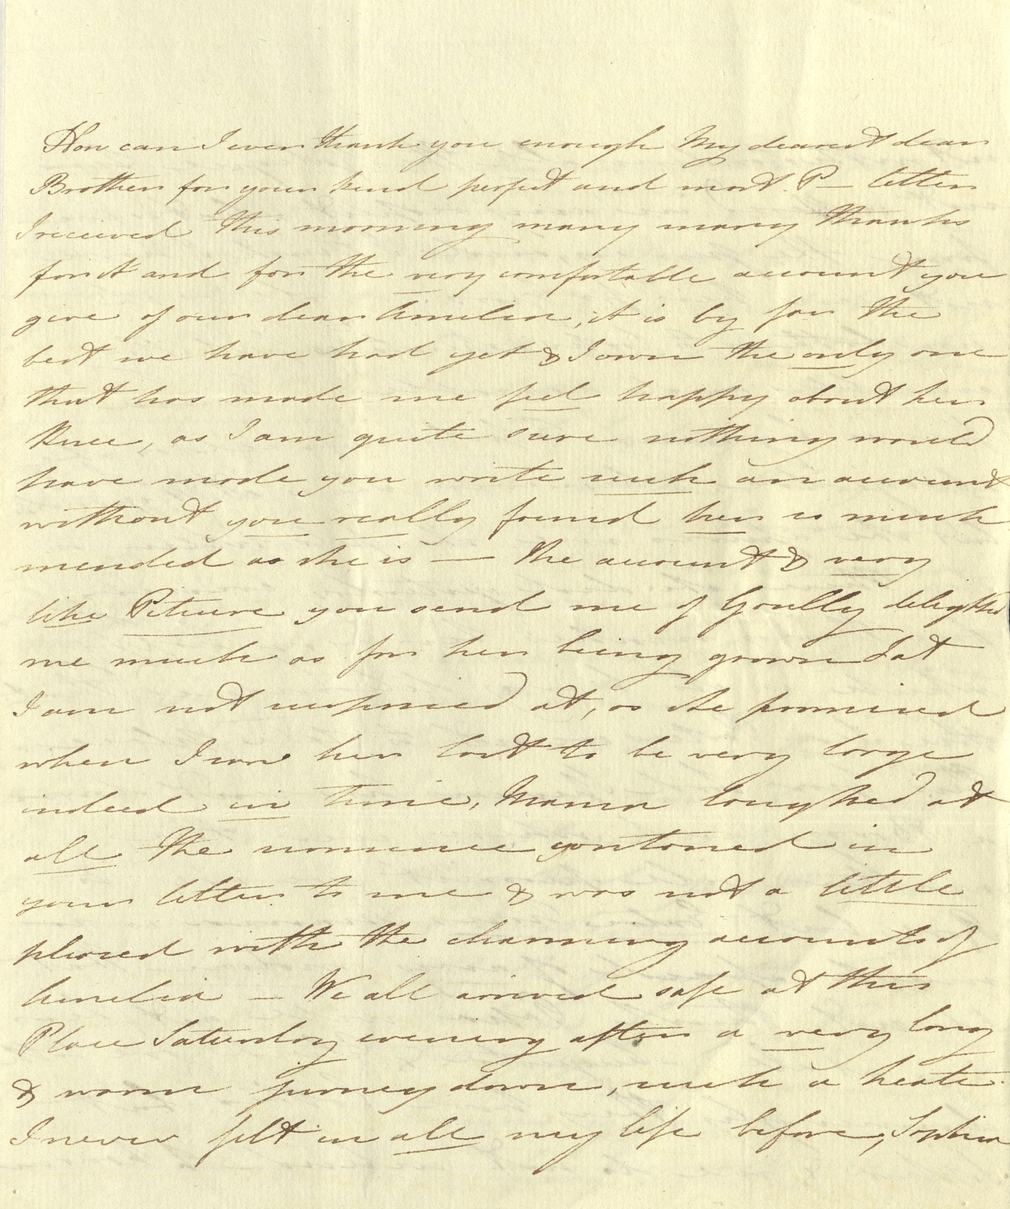 How can I ever thank you enough My dearest dear
Brother for your kind perfect and most P— letter
I received this morning many many thanks
for it and for the very comfortable account you
give of our dear Amelia, it is by far the
best we have had yet & I own the only one
that has made me feel happy about her
Knee, as I am quite sure nothing would
have made you write such an account
without you really found her as much
mended as she is — the account & very
like Picture you send me of Goully delighted
me much as for her being grown fat
I am not surprised at, as she promised
when I saw her last to be very large
indeed in time, Mama laughed at
all the nonsence contained in
your letter to me & was not a little
pleased with the charming accounts of
Amelia — We all arrived safe at this
Place Saturday evening after a very long
& warm journey down, such a heate
I never felt in all my life before, Sophia